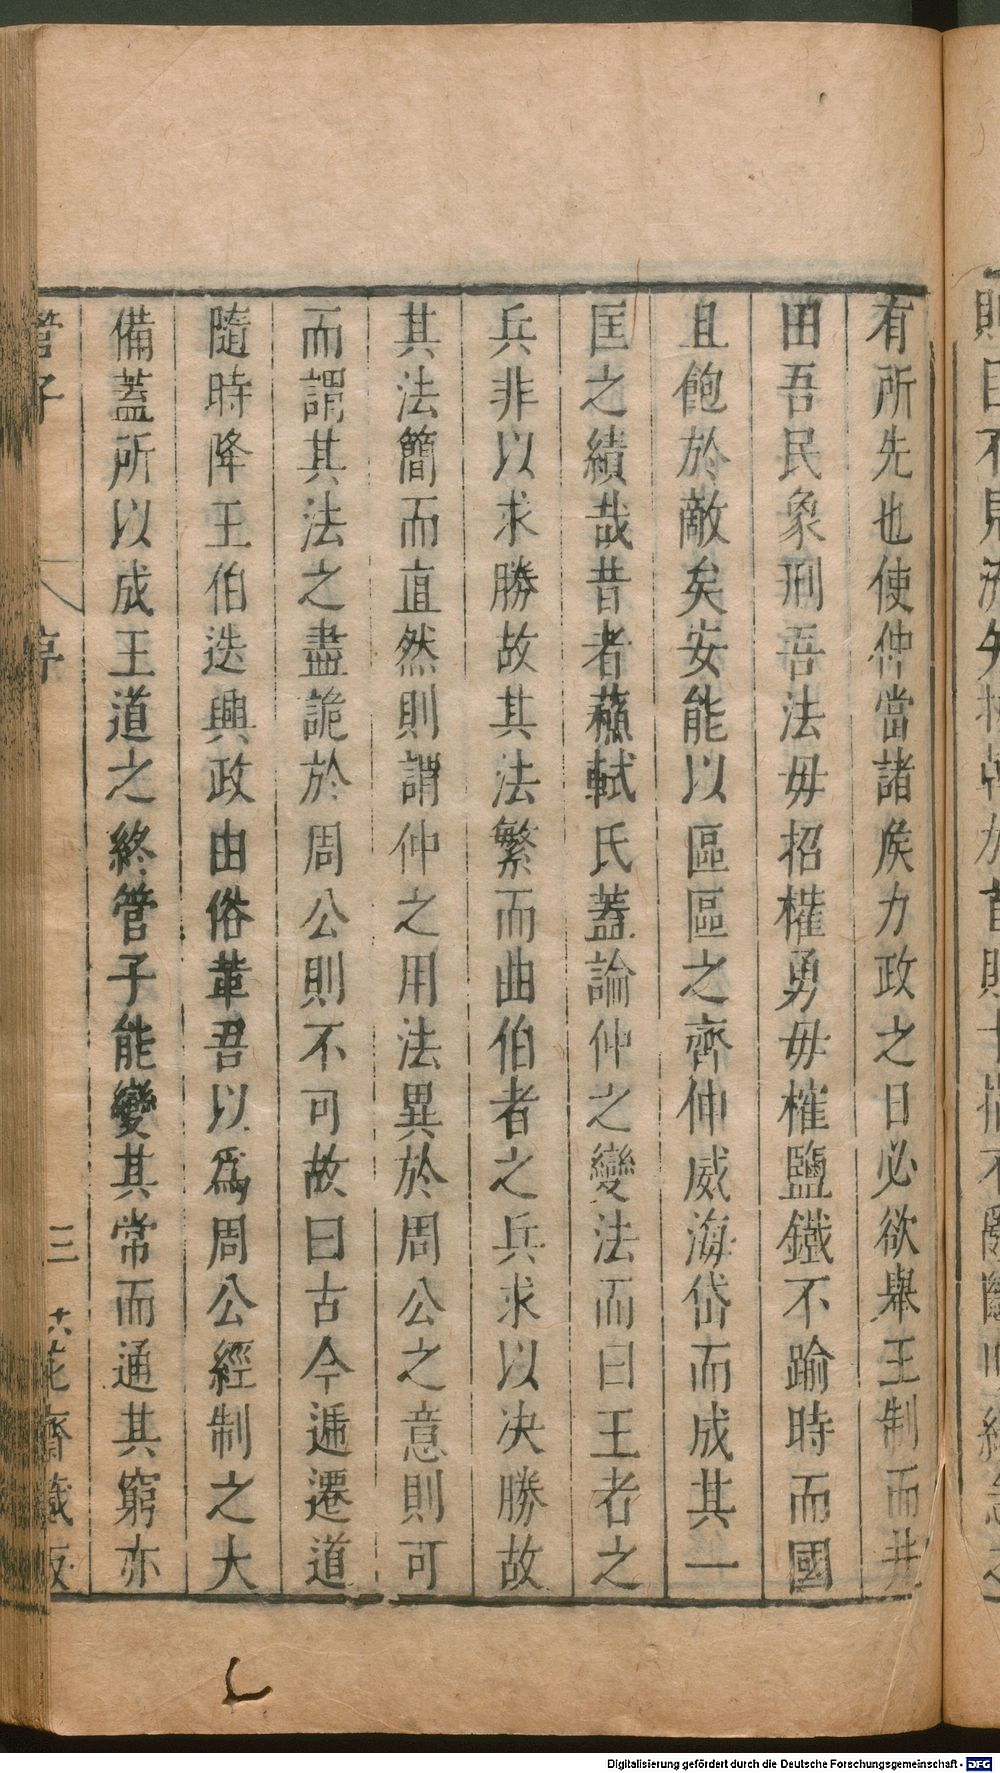 有所先也使仲當諸侯力政之日必欲舉王制而井
田吾民象刑吾法毋招權勇毋榷鹽鐵不踰時而國
且飽於敵矣安能以區區之齊仲威海岱而成其一
匡之績哉昔者蘓軾氏蓋論仲之變法而曰王者之
兵非以求勝故其法繁而曲伯者之兵求以決勝故
其法簡而直然則謂仲之用法異於周公之意則可
而謂其法之盡詭於周公則不可故曰古今遞遷道
隨時降王伯迭興政由俗革吾以爲周公經制之大
備蓋所以成王道之終管子能變其常而通其窮亦
管子
序
三
花齋藏板
Digitalisierung gefördert durch die Deutsche Forschungsgemeinschaft - DFG